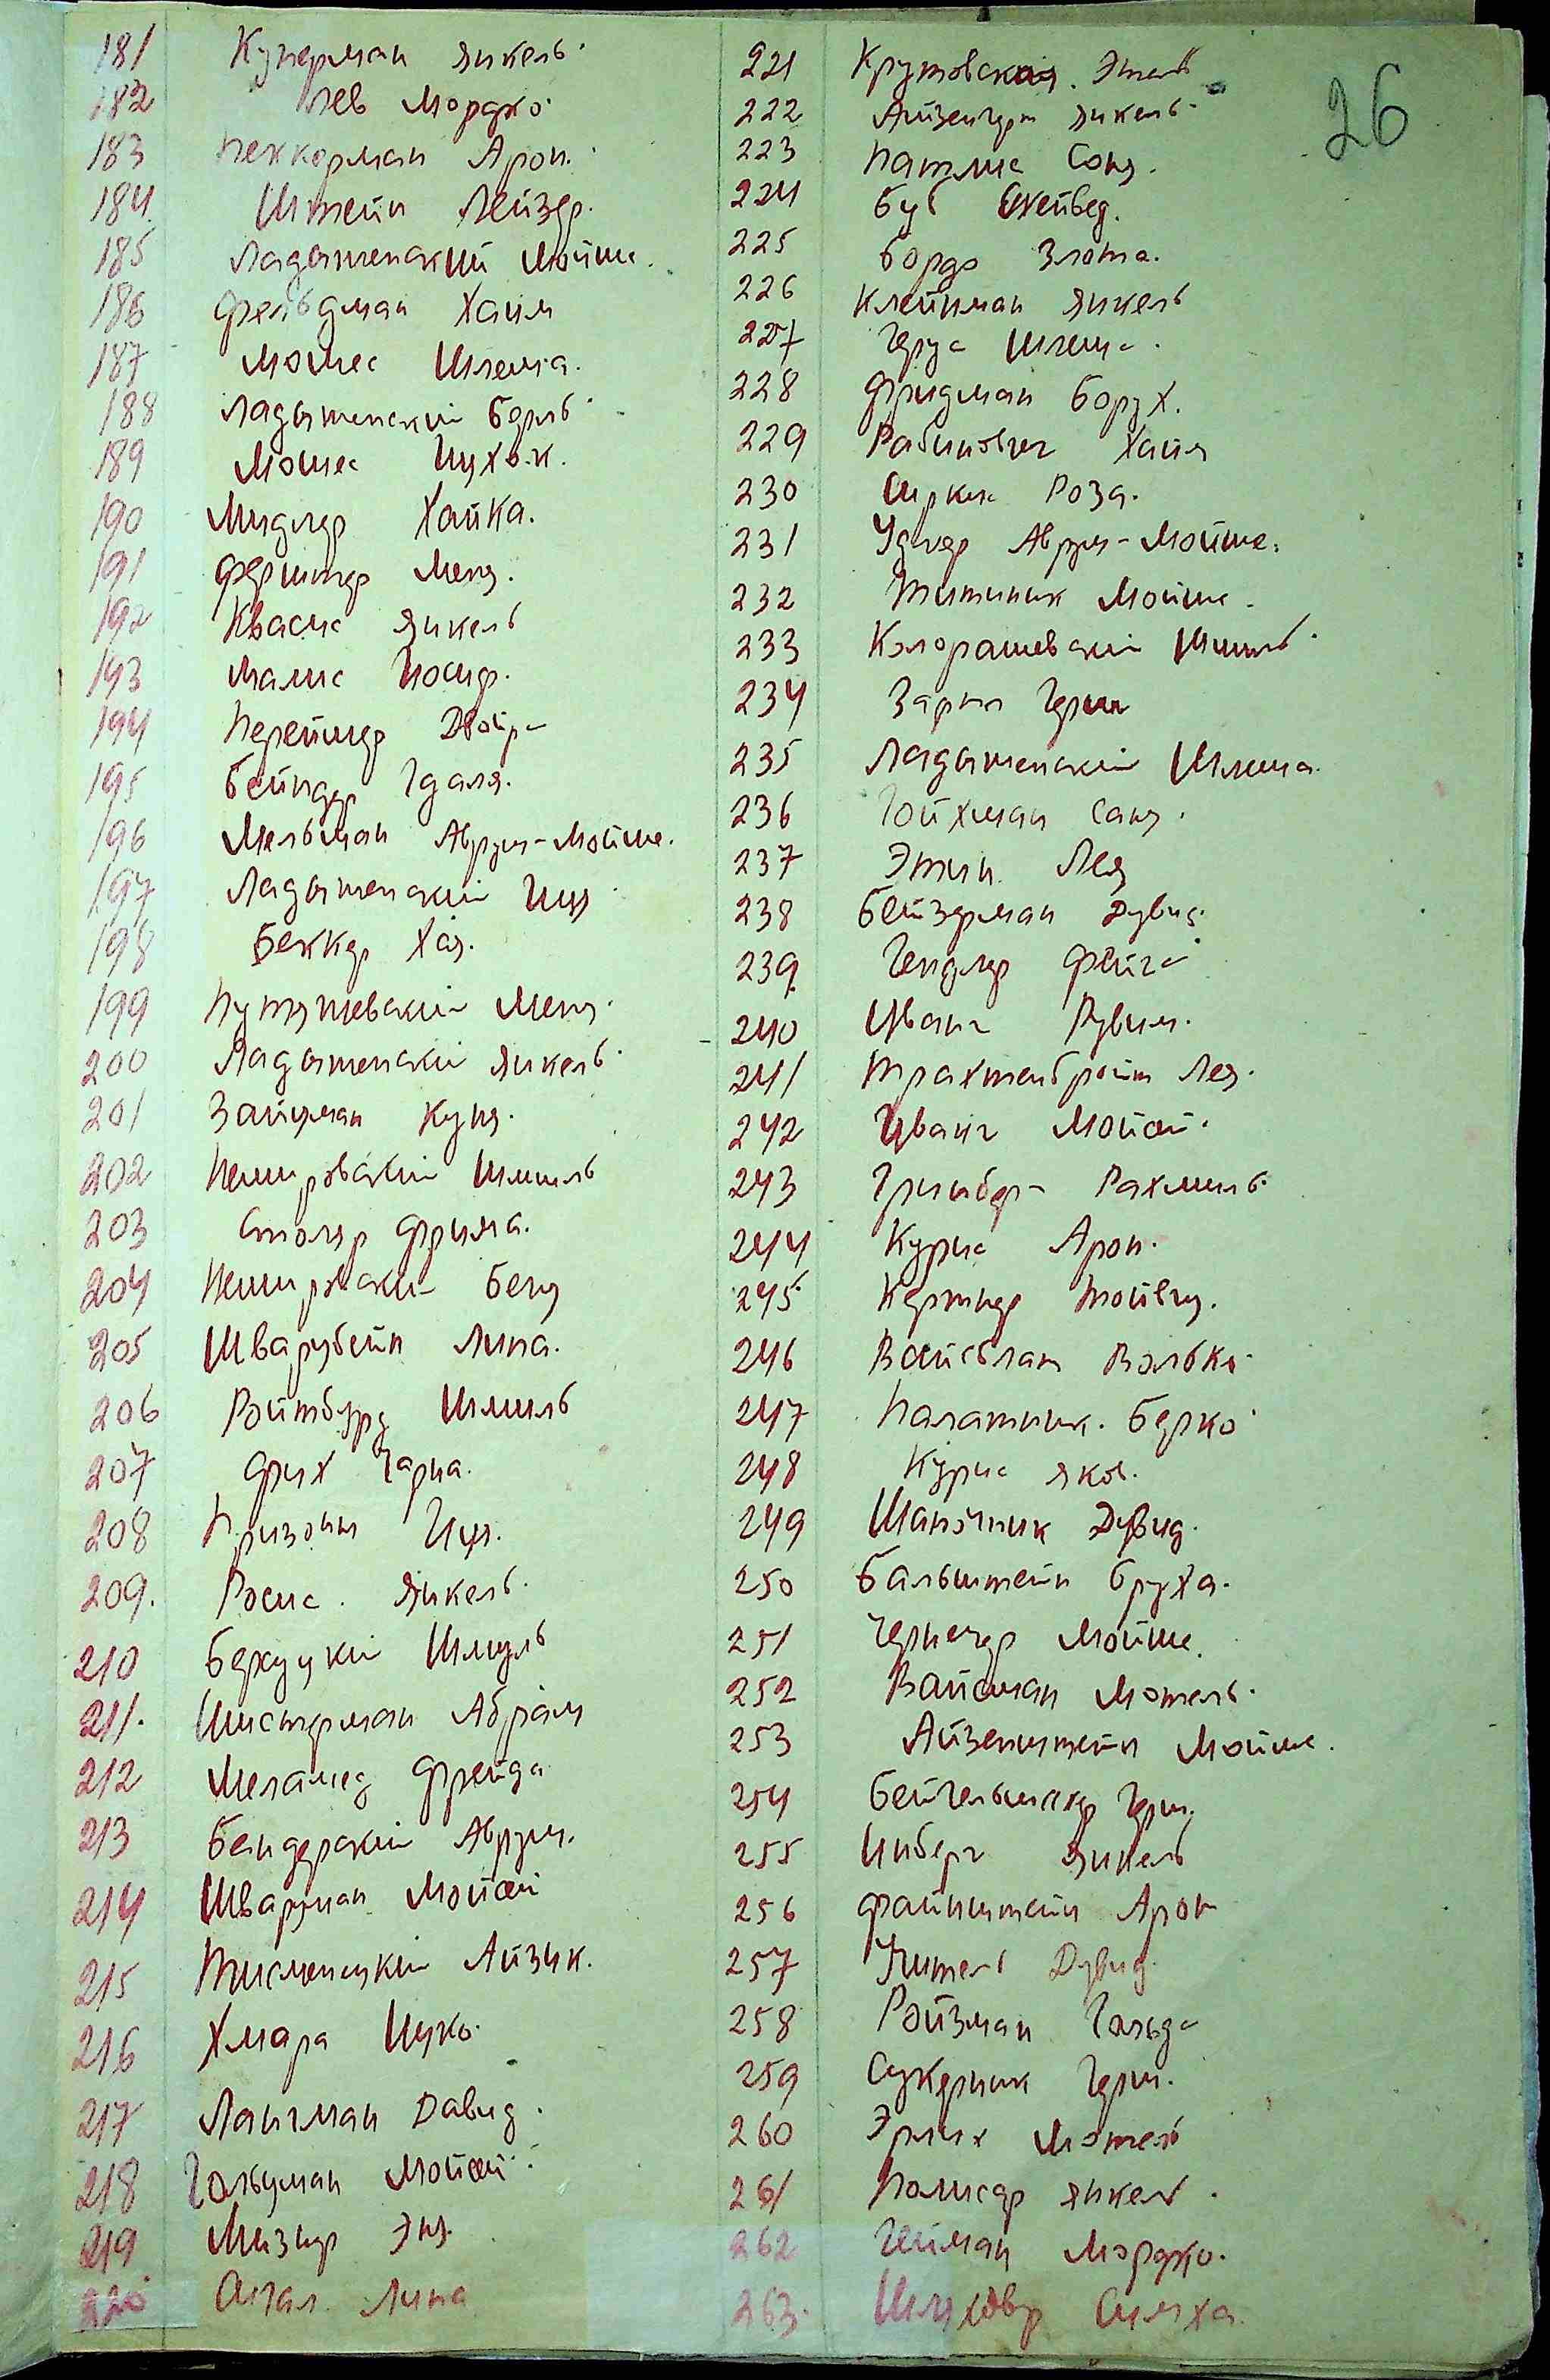 26
181 Куперман Янкель
182 Лев Мордко
183 Пеккерман Арон.
184 Штейн Лейзер.
185 Ладыженский Мойше.
186 Фельдман Хаим
187 Мошес Шлема.
188 Ладыженский Берль
189 Мошес Ицхок.
190 Мидлер Хайка.
191 Ферштер Меня.
192 Квасис Янкель
193 Малис Иосиф.
194 Перейшер Двойра
195 Бендер Гдаля.
196 Мельман Аврум-Мойше.
197 Ладыженский Иця
198 Беккер Хая.
199 Путяшевский Меня.
200 Ладыженский Янкель
201 Зайцман Куня.
202 Немировский Шмиль
203 Столяр Фрима.
204 Немировский Беня
205 Шварубейн Липа.
206 Ройтбурд Шмиль
207 Фрих Чарна.
208 Призант Иця.
209. Росис. Янкель.
210 Бержуцкий Шмуль
211. Шистерман Абрам
212 Меламед Фрейда
213 Бендерский Аврум.
214 Шварцман Мойсей
215 Тисменицкий Айзик.
216 Хмара Ицко.
217 Лангман Давид.
218 Гольцман Мойсей
219 Мизнер Эня.
220 Сигал. Липа
221 Крутовская. Этель
222 Айзенгерт Янкель
223 Патлис Соня.
224 Буб Ехейвед.
225 Борде Злота.
226 Клейман Янкель
227 Герус Шлема.
228 Фридман Борух.
229 Рабинович Хаим
230 Сиркис Роза.
231 Удлер Аврум-Мойше.
232 Житник Мойше.
233 Колорашевский Шмиль
234 Зарил Герш
235 Ладыженский Шлема.
236 Гойхман Саня.
237 Этин. Лея
238 Бейзерман Дувид.
239. Гендлер Фейга
240 Цванг Рувим.
241 Трахтенбройт Лея.
242 Цванг Мойсей.
243 Гринберг Рахмиль.
244 Курис Арон.
245 Кержнер Тойвия.
246 Вайсблат Волько
247 Палатник. Берко
248 Курис Яков.
249 Шапочник Дувид.
250 Бальштейн Бруха.
251 Чернечер Мойше.
252 Вайсман Мотель.
253 Айзенштейн Мойше.
254 Бейгельмахер Герш.
255 Инберг Янкель
256 Файнштейн Арон
257 Учитель Дувид.
258 Ройзман Гольда
259 Сукерник Герш.
260 Эрлих Мотель
261 Полисар Янкель.
262 Гейман Мордко.
263. Симха